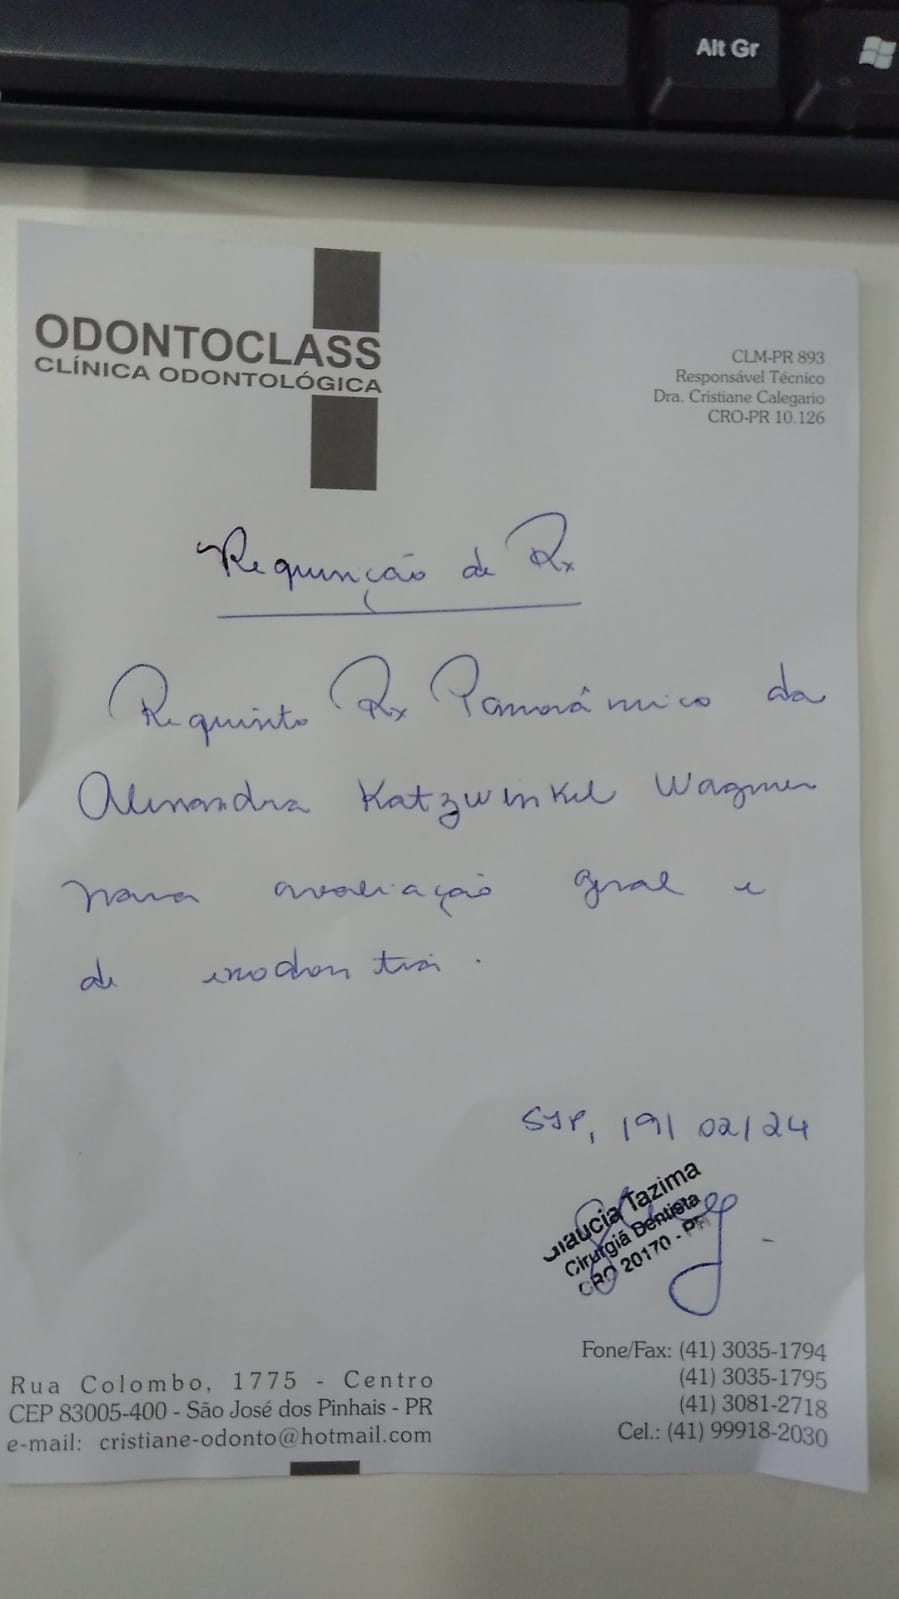 Alt Gr
ODONTOCLASS
CLÍNICA ODONTOLÓGICA
CLM-PR 893
Responsável Técnico
Dra. Cristiane Calegario
CRO-PR 10.126
Requisição de Rx
Requisito Rx Panorâmico da
Alexandra Katzwinkel Wagner
para avaliação geral e
de exodontia.
SJP, 19/02/24
Glaucia Tazima
Cirurgiã Dentista
CRO 20170 - PR
Rua Colombo, 1775 - Centro
CEP 83005-400 - São José dos Pinhais - PR
e-mail: cristiane-odonto@hotmail.com
Fone/Fax: (41) 3035-1794
(41) 3035-1795
(41) 3081-2718
Cel.: (41) 99918-2030